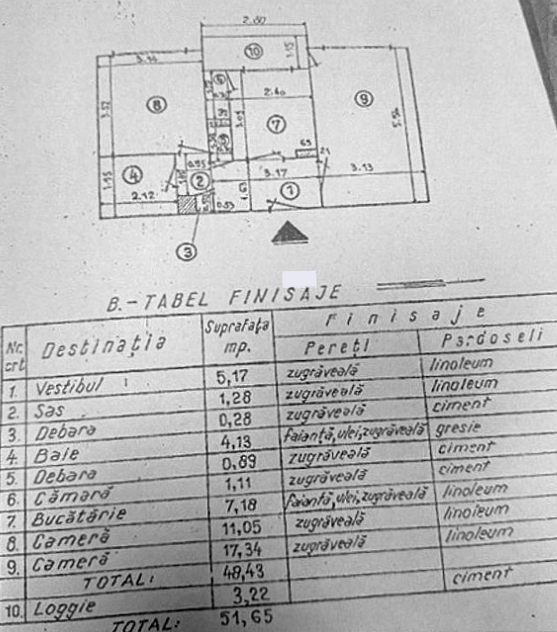 2.80
10
1.15
3.44
6
8
3.52
2.40
9
3.02
7
5.54
5
63
21
4
0.95
2
3.17
3.13
1.95
2.12
1
0.53
3
B.- TABEL FINISAJE
Nr. crt Destinația Suprafața mp. Finisaje
Pereți Pardoseli
1. Vestibul 5,17 zugrăveală linoleum
2. Sas 1,28 zugrăveală linoleum
3. Debara 0,28 zugrăveală ciment
4. Baie 4,13 faianță,ulei,zugrăveală gresie
5. Debara 0,89 zugrăveală ciment
6. Cămară 1,11 zugrăveală ciment
7. Bucătărie 7,18 faianță,ulei,zugrăveală linoleum
8. Cameră 11,05 zugrăveală linoleum
9. Cameră 17,34 zugrăveală linoleum
TOTAL: 48,43
10. Loggie 3,22 ciment
TOTAL: 51,65